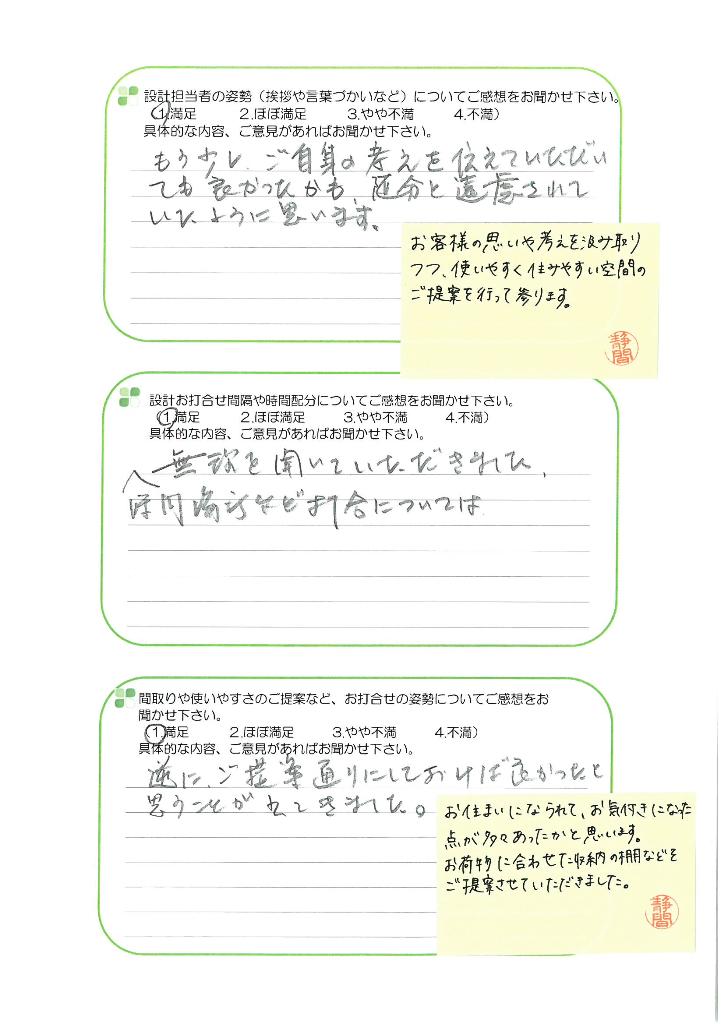 設計担当者の姿勢（挨拶や言葉づかいなど）についてご感想をお聞かせ下さい。
(1.満足 2.ほぼ満足 3.やや不満 4.不満)
具体的な内容、ご意見があればお聞かせ下さい。
もう少し、ご自身の考えを伝えていただい
ても良かったかも、随分と遠慮されて
いたように思います。
お客様の思いや考えを汲み取り
つつ、使いやすく住みやすい空間の
ご提案を行って参ります。
静間
設計お打合せ間隔や時間配分についてご感想をお聞かせ下さい。
(1.満足 2.ほぼ満足 3.やや不満 4.不満)
具体的な内容、ご意見があればお聞かせ下さい。
無理を聞いていただきました、
など打合については
間取りや使いやすさのご提案など、お打合せの姿勢についてご感想をお
聞かせ下さい。
(1.満足 2.ほぼ満足 3.やや不満 4.不満)
具体的な内容、ご意見があればお聞かせ下さい。
逆に、ご提案通りにしておけば良かったと
思うことが出てきました。
お住まいになられて、お気付きになった
点が多々あったかと思います。
お荷物に合わせた収納の棚などを
ご提案させていただきました。
静間